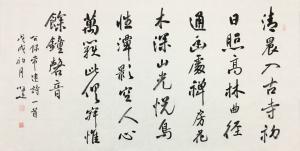 清晨入古寺初
日照高林曲徑
通幽處禅房花
木深山光悦鳥
性潭影空人心
萬籟此俱寂惟
餘鐘磬音
常建詩一首
戊戌初月